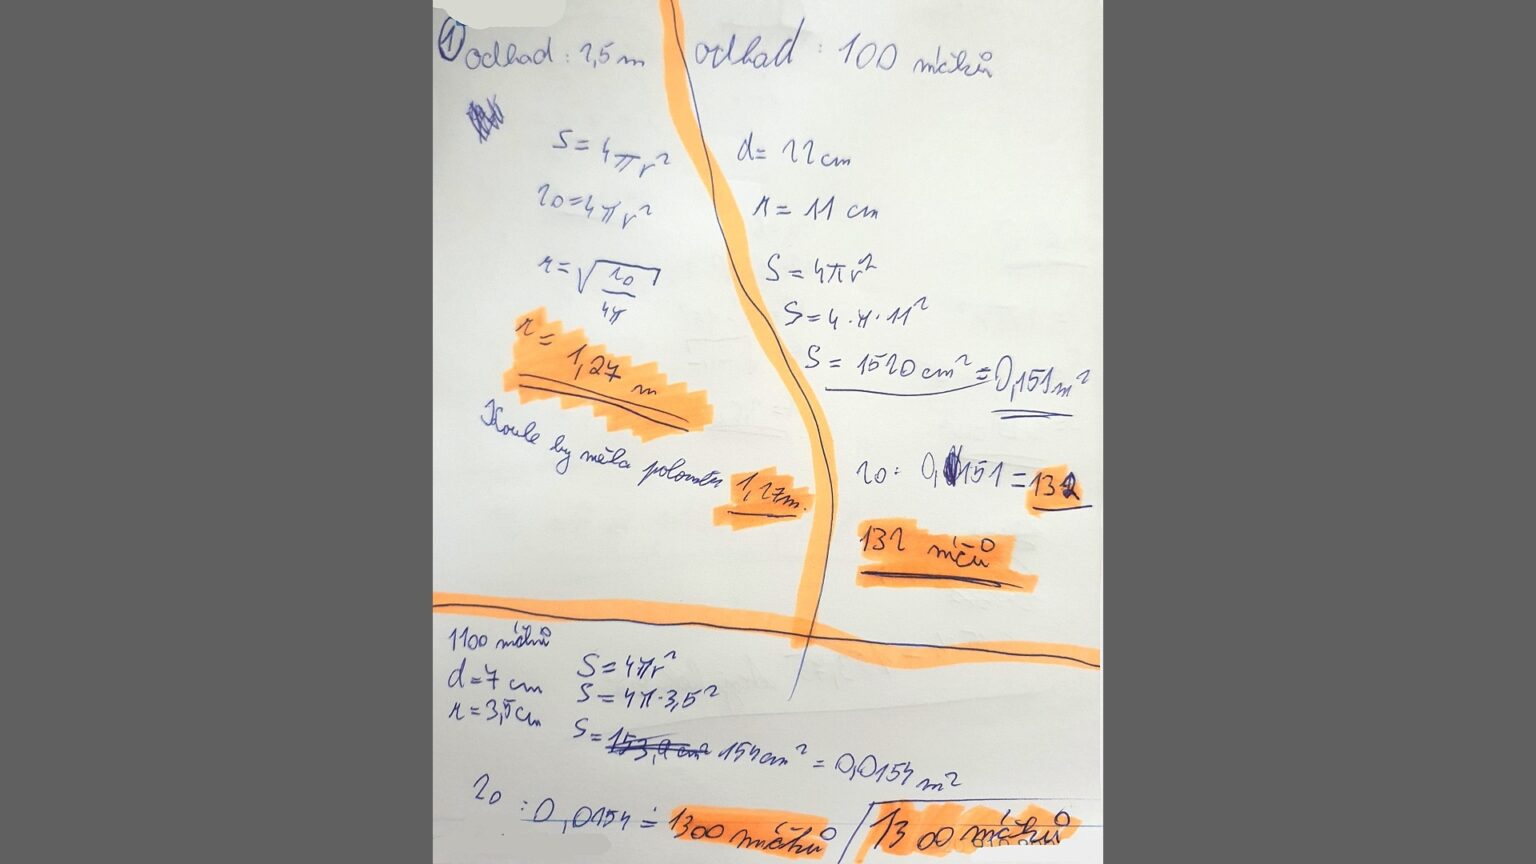 1 odhad : 2,5 m
S = 4πr²
20 = 4πr²
r = √20/4π
r = 1,27 m
Koule by měla poloměr 1,27m.
odhad : 100 míčků
d = 22 cm
r = 11 cm
S = 4πr²
S = 4·π·11²
S = 1520 cm² = 0,151 m²
20 : 0,151 = 132
132 míčů
1100 míčků
d = 7 cm
r = 3,5 cm
S = 4πr²
S = 4π·3,5²
S = 154 cm² = 0,0154 m²
20 : 0,0154 ≐ 1300 míčků
1300 míčků